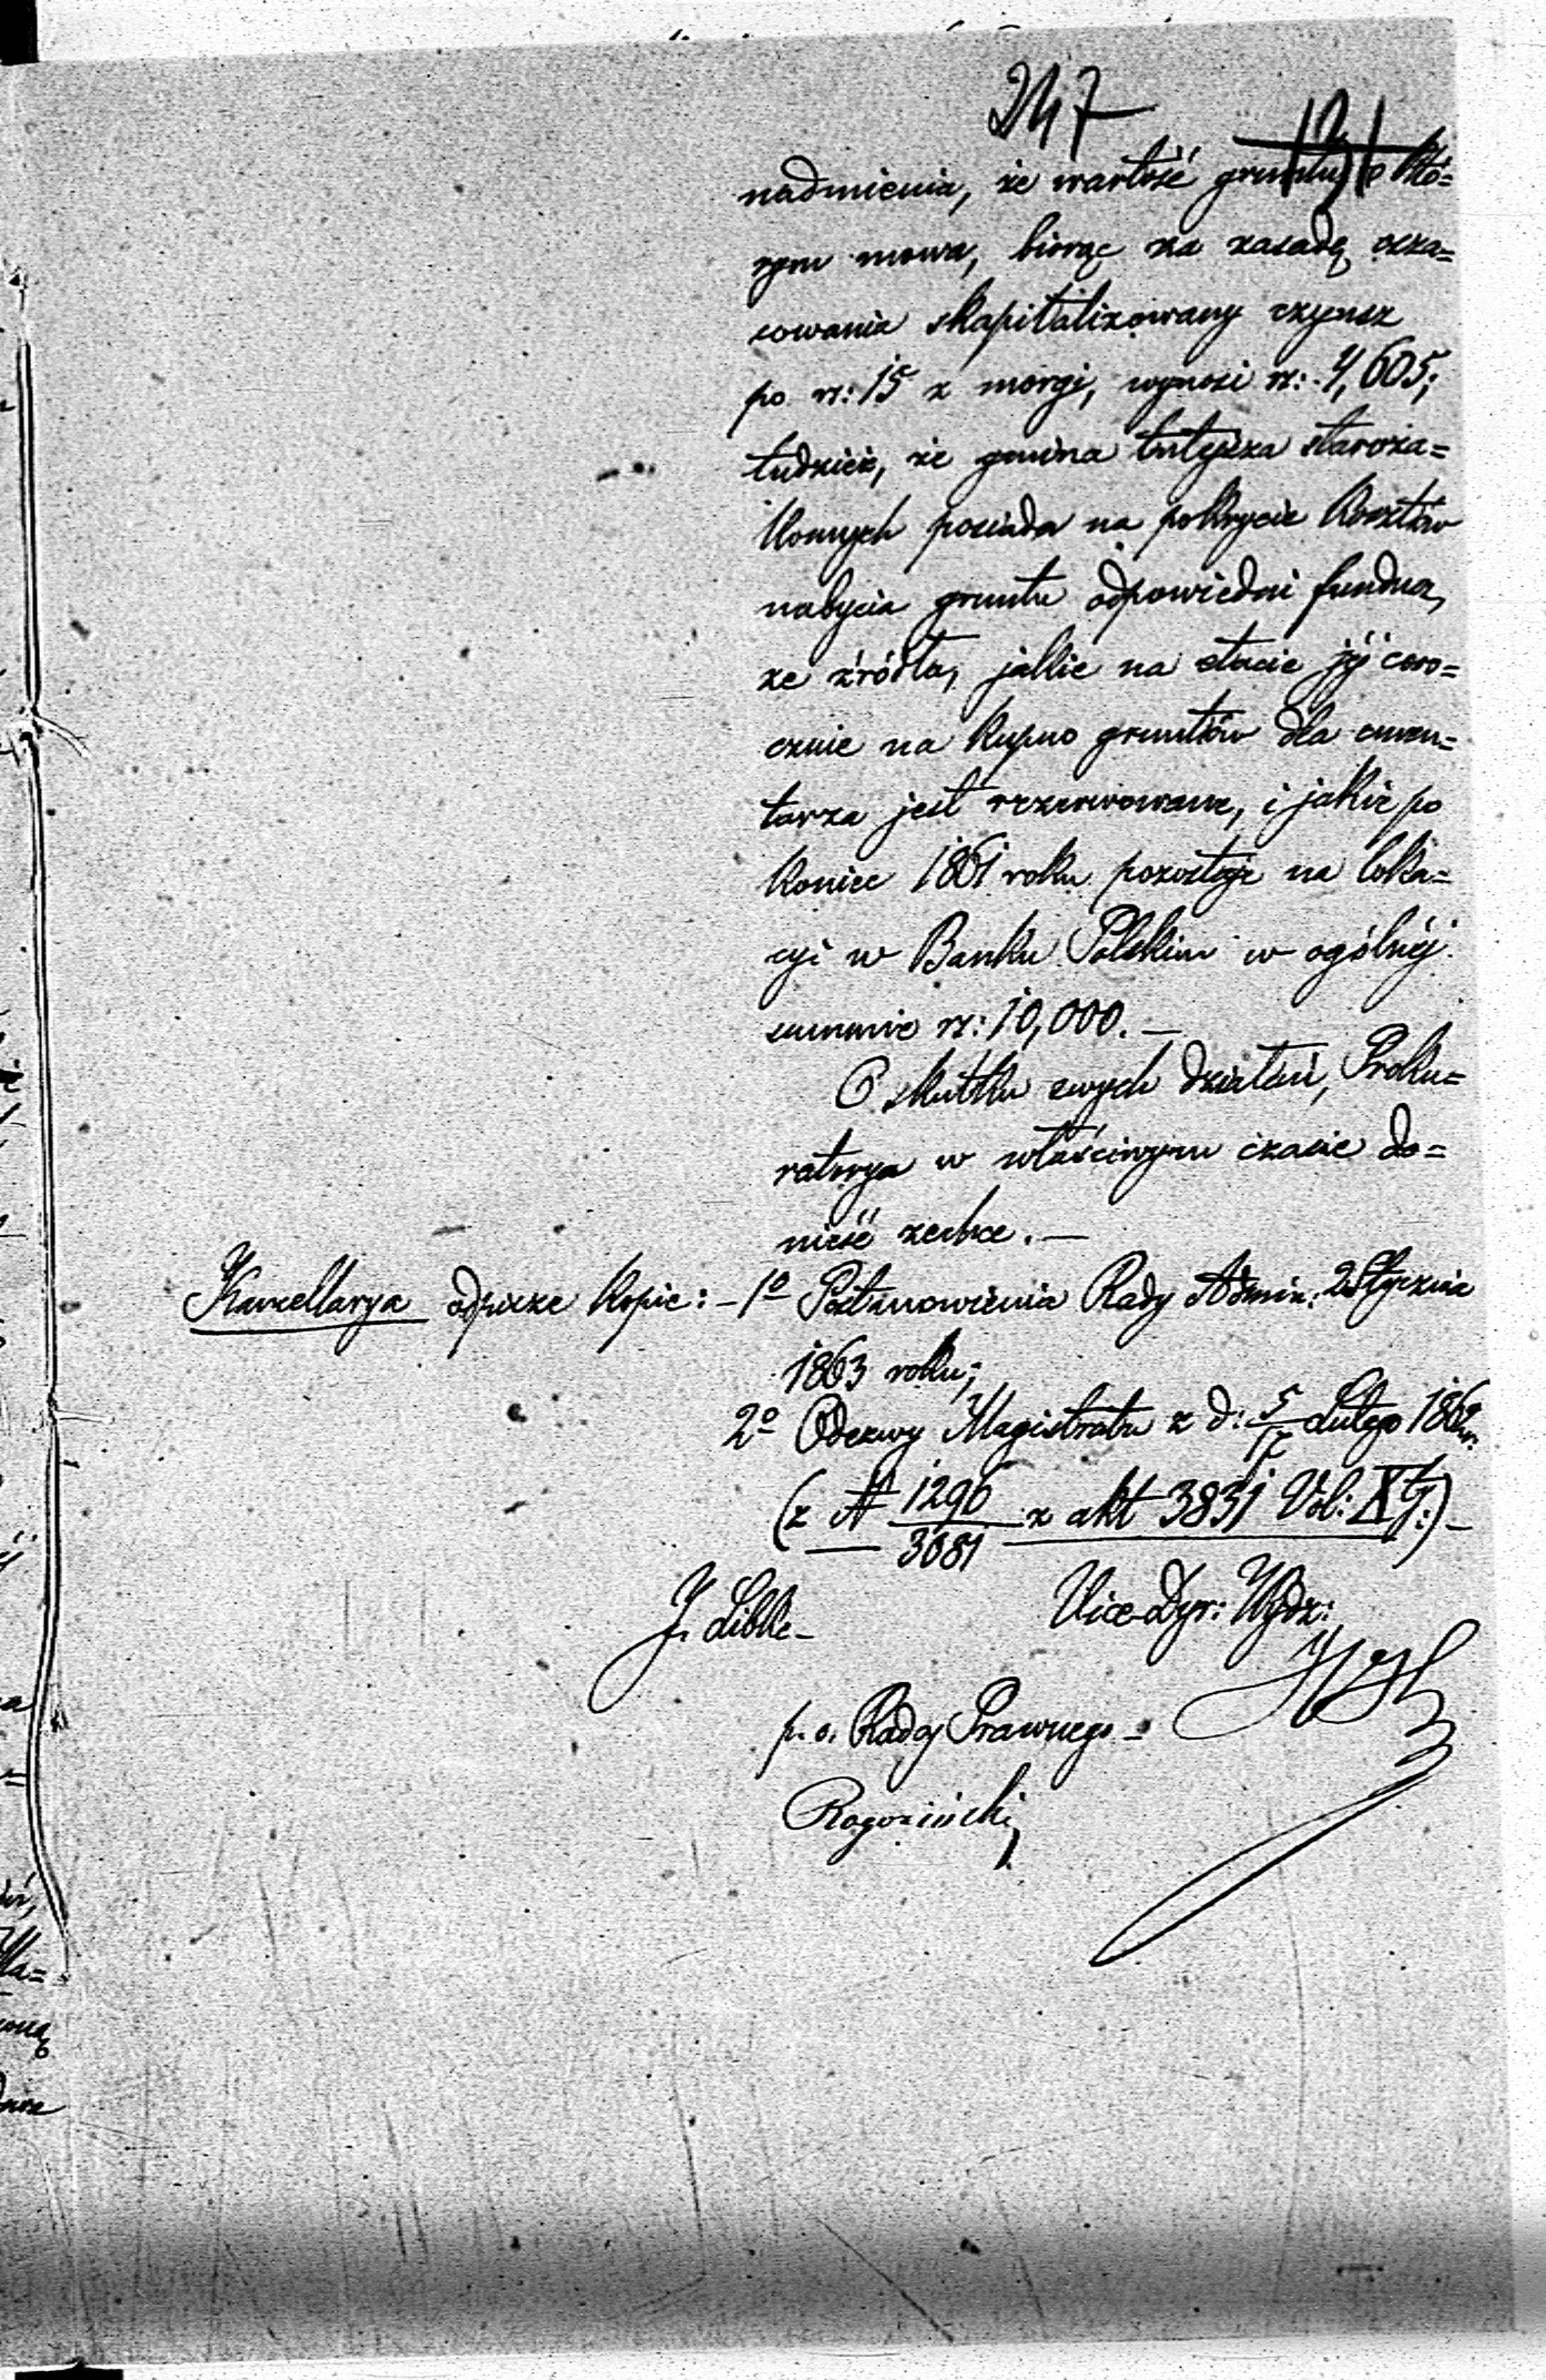 247
121
nadmienia, że wartość gruntu o któ=
rym mowa, biorąc za zasadę osza=
cowania skapitalizowany czynsz
po rs: 15 z morgi, wynosi rs: 4,605;
tudzież, że gmina tutejsza staroza=
konnych posiada na pokrycie kosztów
nabycia gruntu odpowiedni fundusz,
ze źródła, jakie na etacie jéj coro=
cznie na kupno gruntów dla cmen=
tarza jest rezerwowane, i jakie po
koniec 1861 roku pozostaje na loka=
cyi w Banku Polskim w ogólnéj
summie rs: 10,000. —
O skutku swych działań, Proku=
ratorya w właściwym czasie do=
nieść zechce. —
Kancellarya odpisze kopie: – 1º Postanowienia Rady Admin: 2 Stycznia
1863 roku;
2º Odezwy Magistratu z d: 5/17 Lutego 1862 r.
(z N 1296/3081 z akt 3831 Vol: XI:) –
J. Libke –
Vice-Dyr: Wydz:
p. o. Radcy Prawnego –
Rogoziński